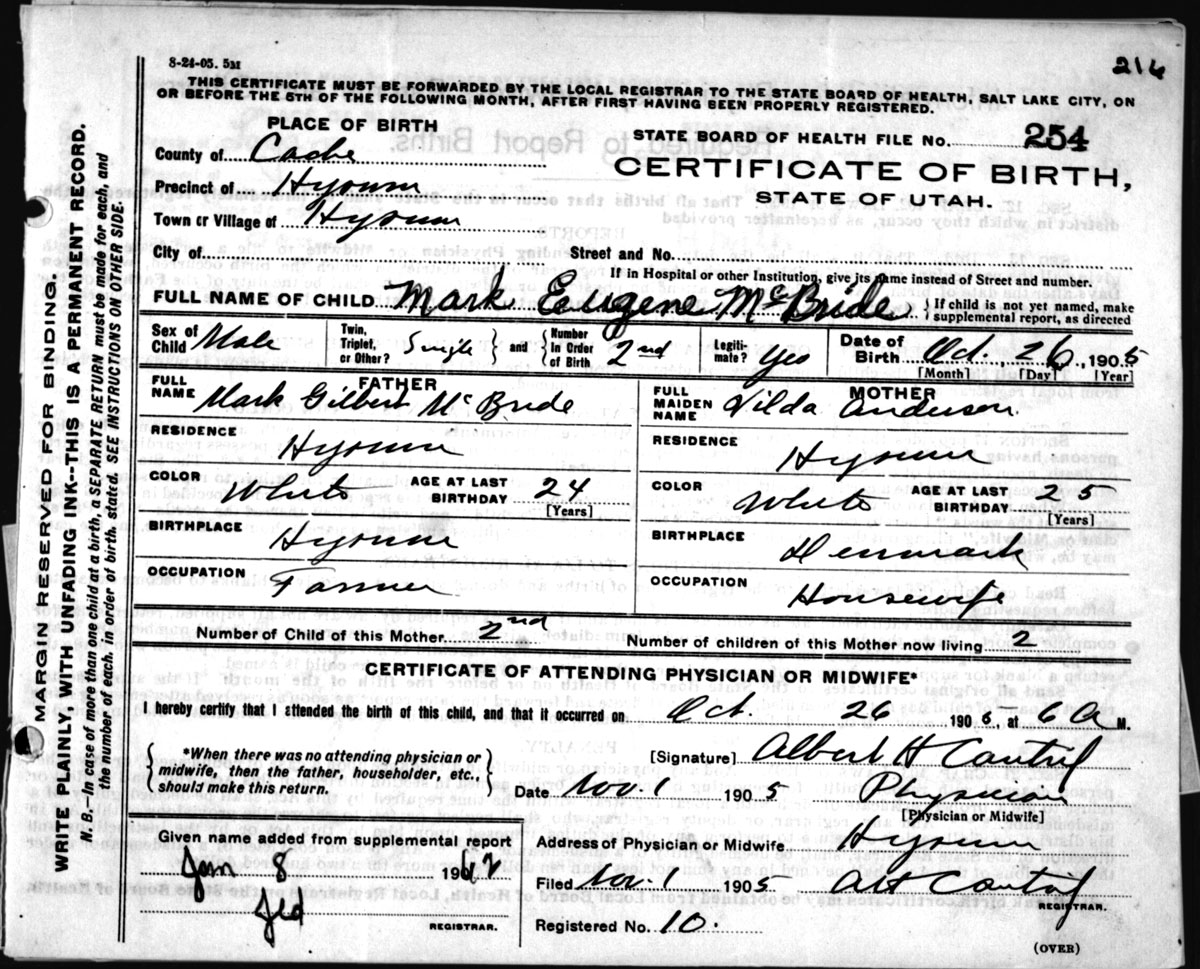 8-24-05. 5M
216
THIS CERTIFICATE MUST BE FORWARDED BY THE LOCAL REGISTRAR TO THE STATE BOARD OF HEALTH, SALT LAKE CITY, ON
OR BEFORE THE 5TH OF THE FOLLOWING MONTH, AFTER FIRST HAVING BEEN PROPERLY REGISTERED.
PLACE OF BIRTH
STATE BOARD OF HEALTH FILE NO. 254
County of Cache
CERTIFICATE OF BIRTH,
Precinct of Hyrum
STATE OF UTAH.
Town or Village of Hyrum
City of Street and No.
If in Hospital or other Institution, give its name instead of Street and number.
FULL NAME OF CHILD Mark Eugene McBride { If child is not yet named, make supplemental report, as directed
Sex of Child Male Twin, Triplet, or Other? Single and { Number in Order of Birth 2nd Legiti-mate? Yes Date of Birth Oct. 26, 1905
[Month] [Day] [Year]
FATHER
FULL NAME Mark Gilbert McBride
RESIDENCE Hyrum
COLOR White AGE AT LAST BIRTHDAY 24
[Years]
BIRTHPLACE Hyrum
OCCUPATION Farmer
MOTHER
FULL MAIDEN NAME Anderson
RESIDENCE Hyrum
COLOR White AGE AT LAST BIRTHDAY 25
[Years]
BIRTHPLACE Denmark
OCCUPATION Housewife
Number of Child of this Mother 2nd Number of children of this Mother now living 2
CERTIFICATE OF ATTENDING PHYSICIAN OR MIDWIFE*
I hereby certify that I attended the birth of this child, and that it occurred on Oct. 26 1905, at 6 A M.
{ *When there was no attending physician or
midwife, then the father, householder, etc.,
should make this return. }
[Signature] Albert H Cantril
Date Nov. 1 1905 Physician
[Physician or Midwife]
Address of Physician or Midwife Hyrum
Filed Nov. 1 1905 AH Cantril
REGISTRAR.
Registered No. 10.
Given name added from supplemental report
Jan 8 1962
REGISTRAR.
(OVER)
MARGIN RESERVED FOR BINDING.
WRITE PLAINLY, WITH UNFADING INK--THIS IS A PERMANENT RECORD.
N. B.—In case of more than one child at a birth, a SEPARATE RETURN must be made for each, and
the number of each, in order of birth, stated. SEE INSTRUCTIONS ON OTHER SIDE.